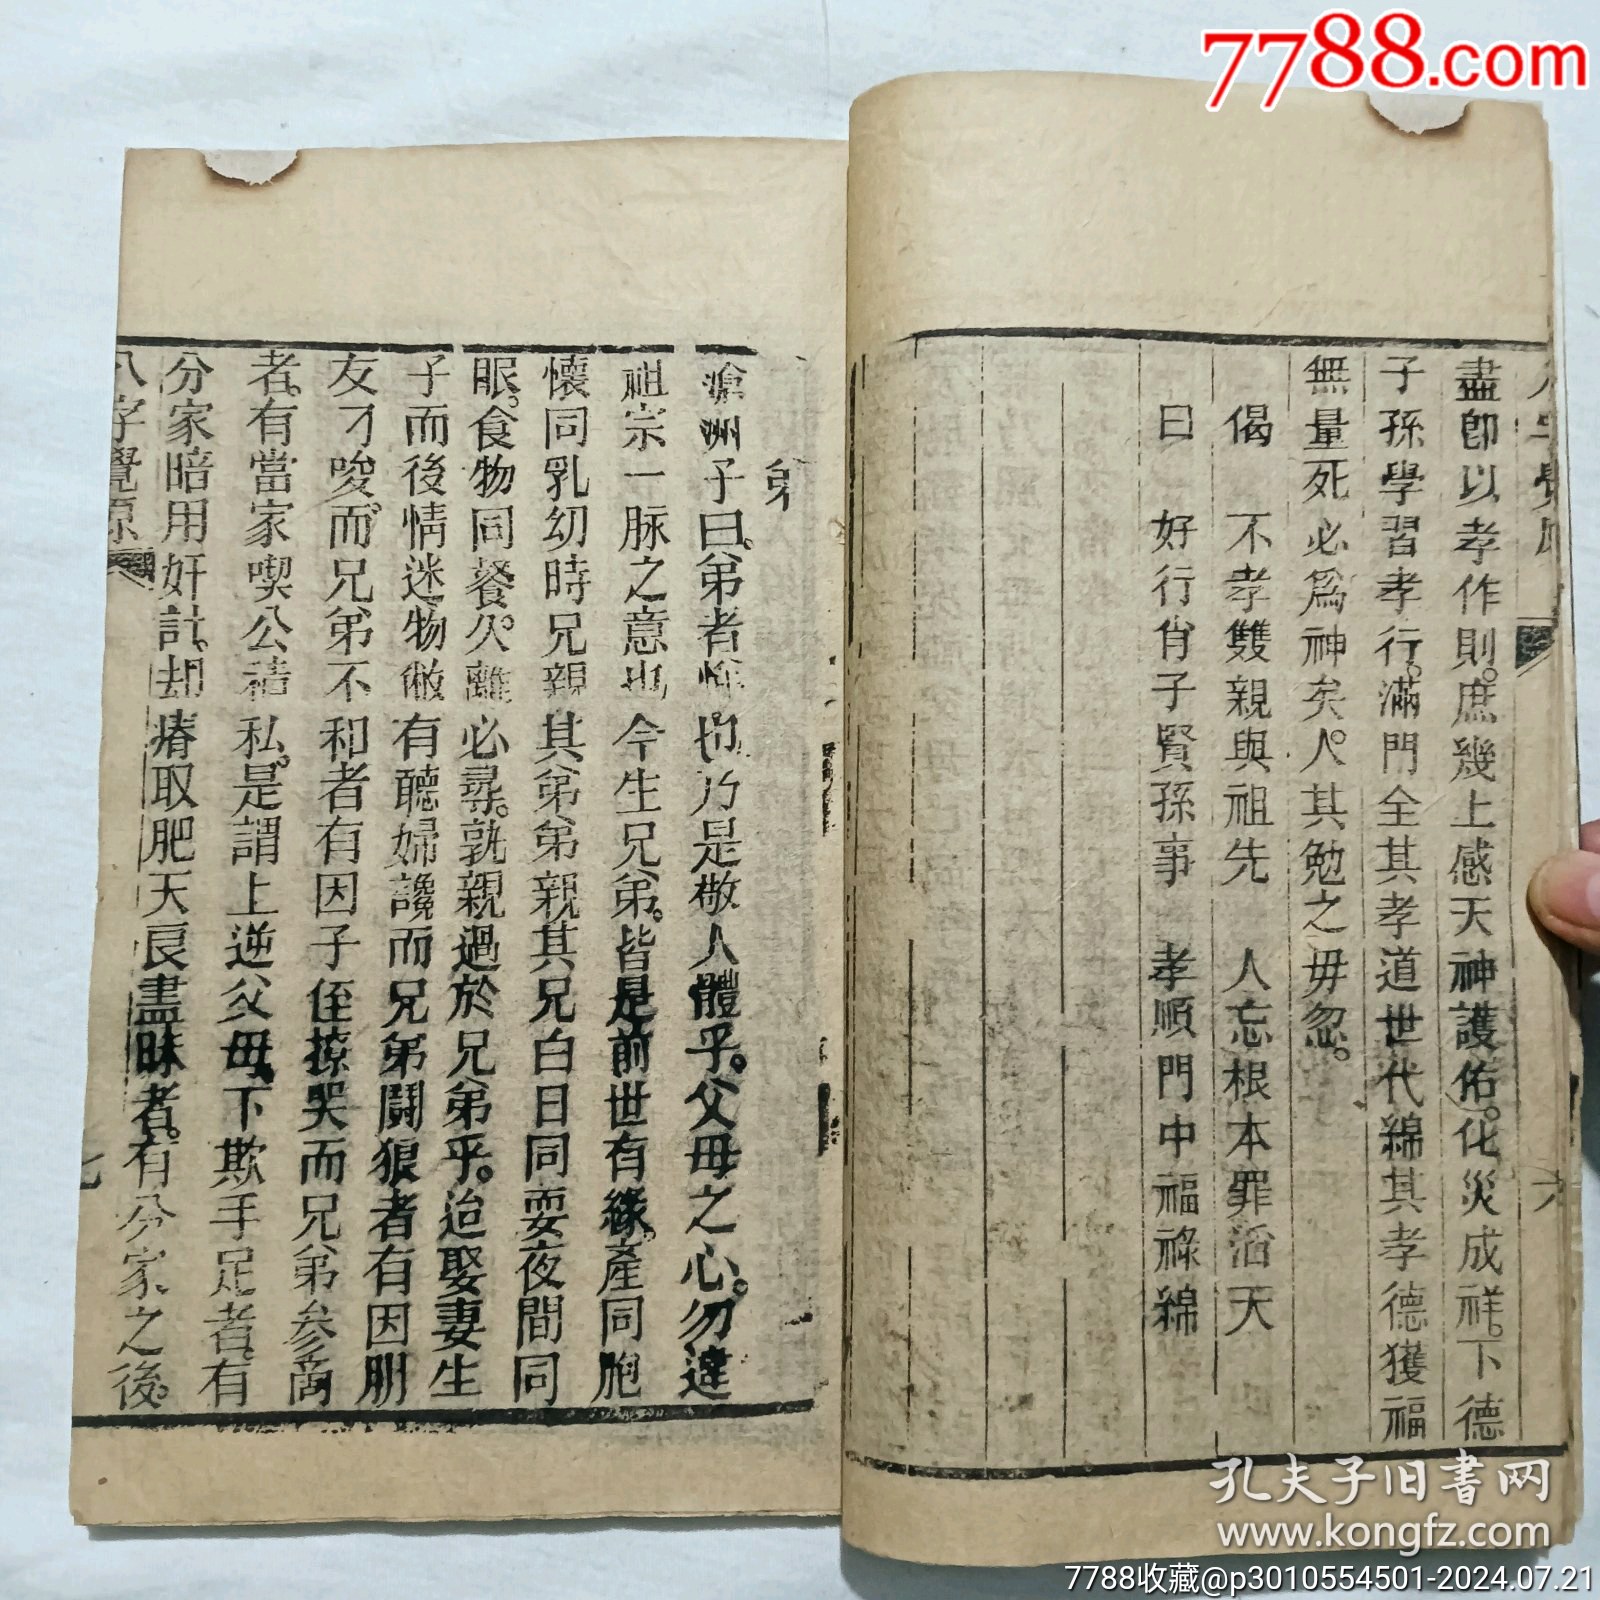 7788.com
八字覺原
六
盡卽以孝作則。庶幾上感天神護佑。化災成祥。下德
子孫學習孝行。滿門全其孝道世代綿其孝德獲福
無量死必爲神矣。人其勉之毋忽。
偈 不孝雙親與祖先 人忘根本罪滔天
曰 好行肖子賢孫事 孝順門中福祿綿
弟
滄洲子曰。弟者悌也。乃是敬人體乎。父母之心。勿違
祖宗一脉之意也今生兄弟。皆是前世有緣。產同胞
懷同乳幼時兄親其弟弟親其兄白日同耍夜間同
眠。食物同餐久。離必尋。孰親過於兄弟乎。迨娶妻生
子而後情迷物徶有聽婦讒而兄弟鬪狠者有因朋
友刁唆。而兄弟不和者有因子侄撩哭而兄弟參商
者。有當家喫公積私。是謂上逆父母。下欺手足者。有
分家暗用奸計。却瘠取肥天良盡昧者。有分家之後。
八字覺原
七
孔夫子旧書网
www.kongfz.com
7788收藏@p3010554501-2024.07.21